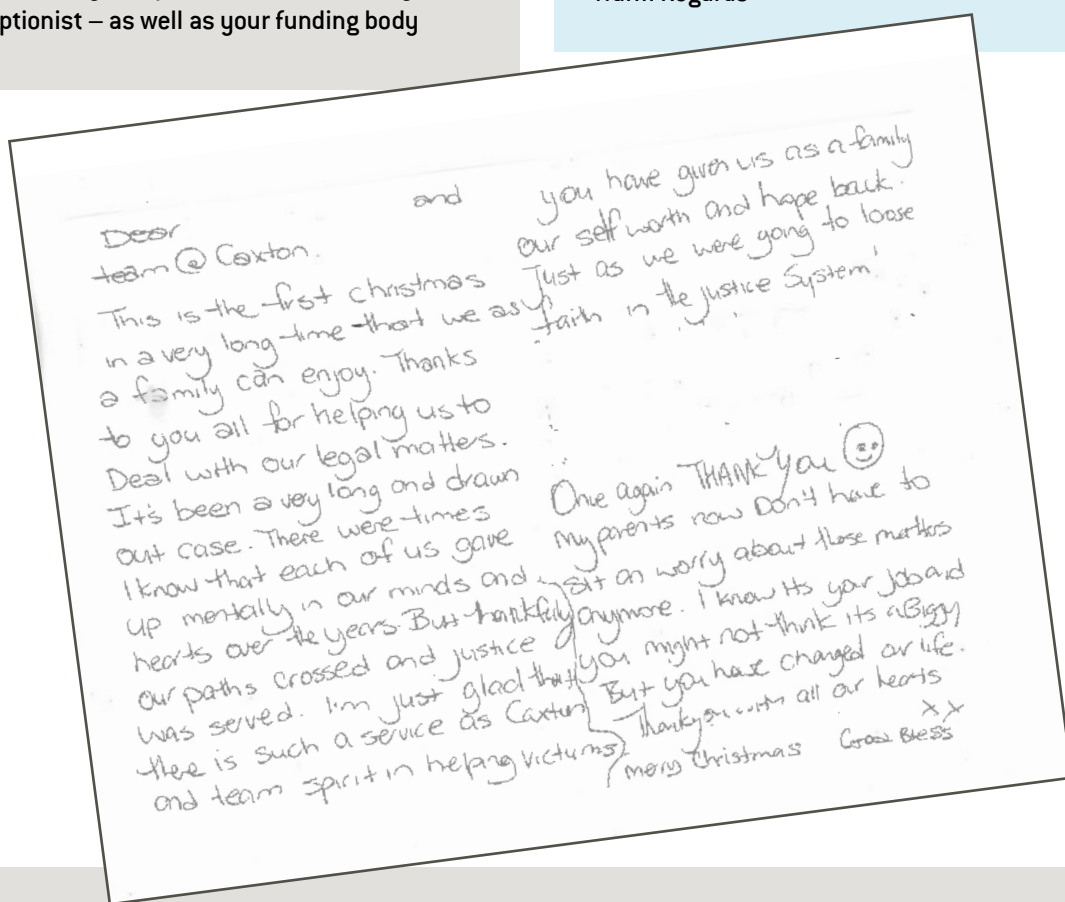 ptionist – as well as your funding body
Warm Regards
Dear and
team @ Caxton.
This is the first christmas
in a very long time that we as
a family can enjoy. Thanks
to you all for helping us to
Deal with our legal matters.
It's been a very long and drawn
out case. There were times
I know that each of us gave
up mentally in our minds and
hearts over the years. But thankfully
our paths crossed and justice
was served. I'm just glad that
there is such a service as Caxton
and team spirit in helping victums
you have given us as a family
our self worth and hope back.
Just as we were going to loose
faith in the justice System!
Once again THANK YOU
my parents now Don't have to
sit an worry about these matters
anymore. I know its your job and
you might not think its a Biggy
But you have changed our life.
Thankyou with all our hearts
xx
merry Christmas God Bless